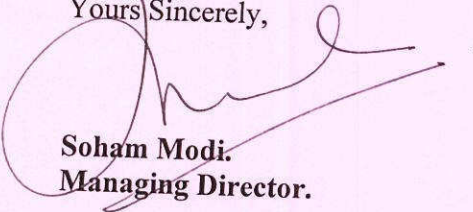 Yours Sincerely,
Soham Modi.
Managing Director.